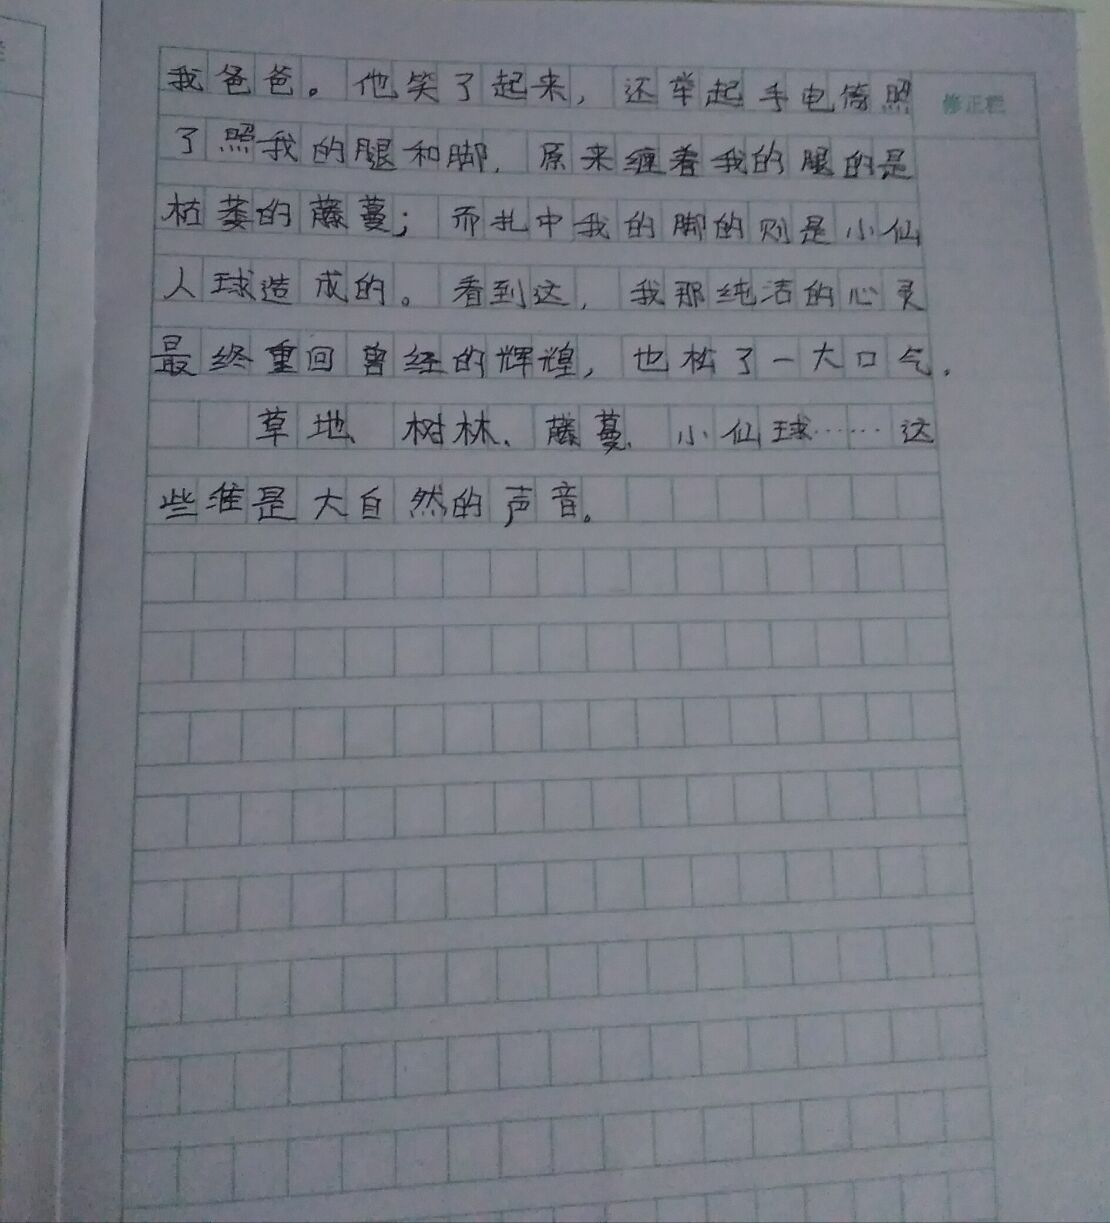 我爸爸。他笑了起来，还举起手电筒照
修正栏
了照我的腿和脚，原来缠着我的腿的是
枯萎的藤蔓；而扎中我的脚的则是小仙
人球造成的。看到这，我那纯洁的心灵
最终重回曾经的辉煌，也松了一大口气。
草地、树林、藤蔓、小仙球……这
些准是大自然的声音。